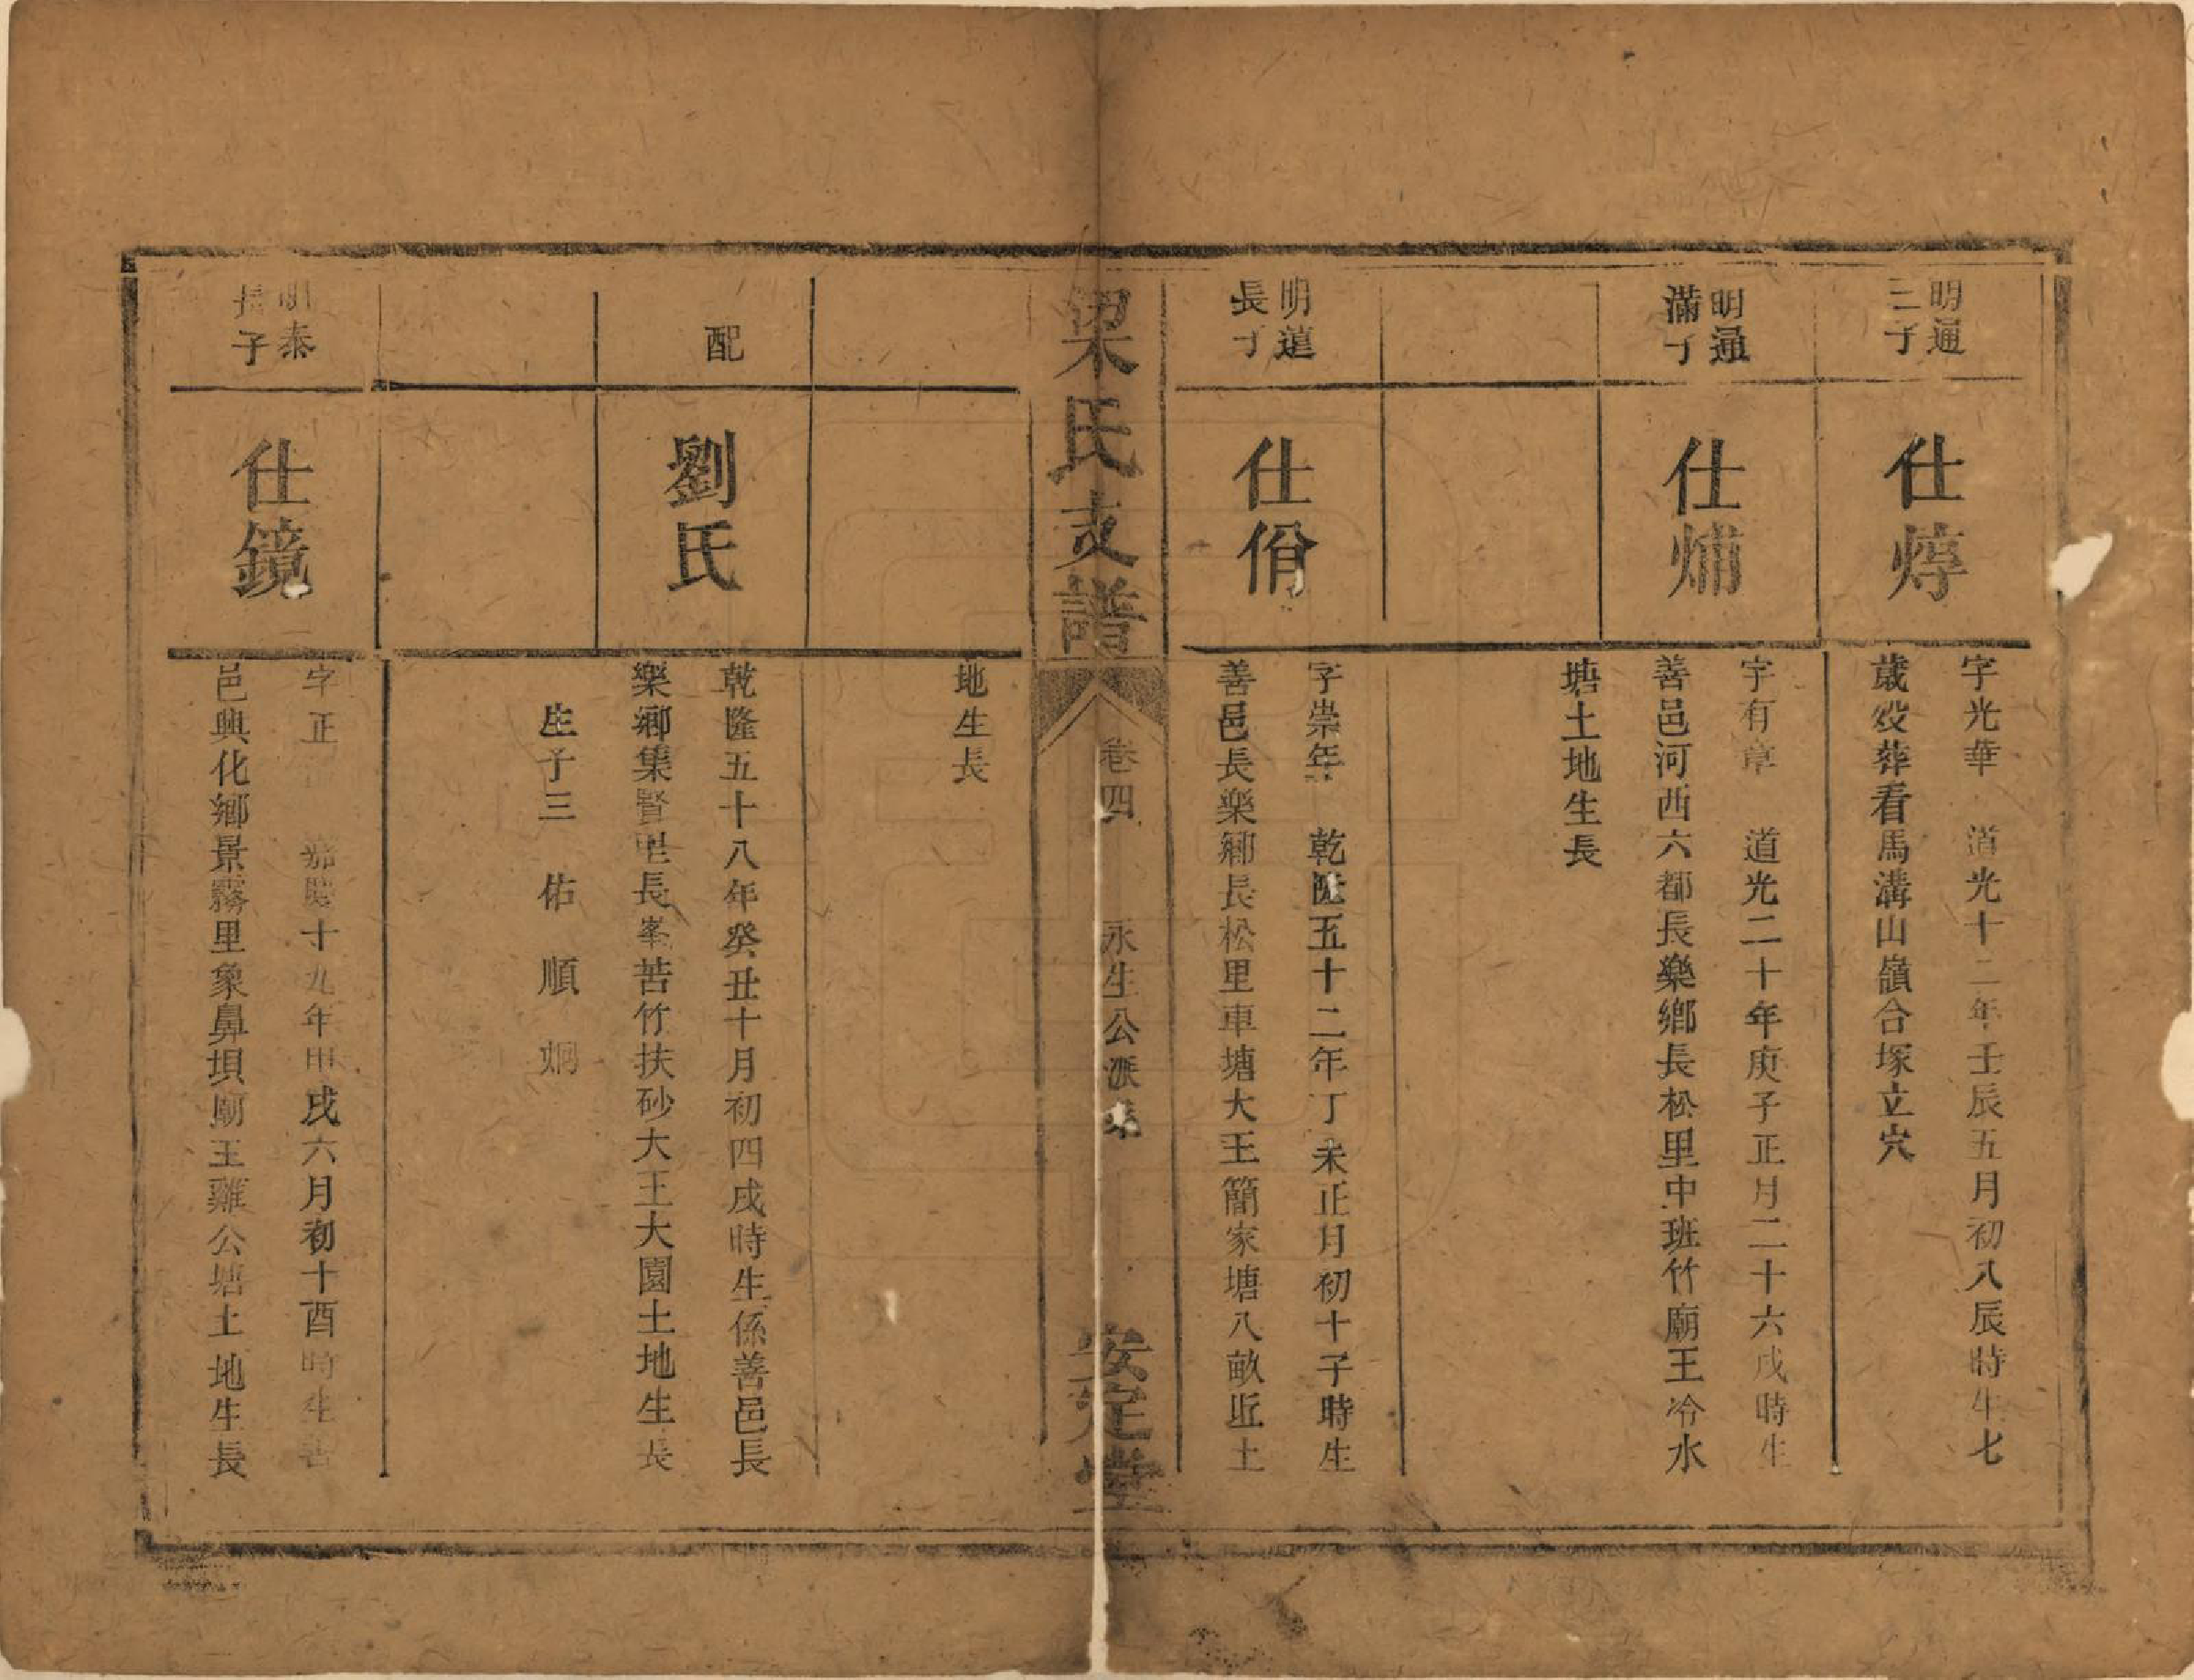 明通
三子
仕焞
字光華 道光十二年壬辰五月初八辰時生七
歲歿葬看馬溝山嶺合塚立穴
明通
滿子
仕㶻
字有章 道光二十年庚子正月二十六戌時生
善邑河西六都長樂鄉長松里中班竹廟王冷水
塘土地生長
明蓮
長子
仕佾
字崇年 乾隆五十二年丁未正月初十子時生
善邑長樂鄉長松里車塘大王簡家塘八畝坵土
梁氏支譜
卷四
永生公派系
安定堂
地生長
配
劉氏
乾隆五十八年癸丑十月初四戌時生係善邑長
樂鄉集賢里長峯苦竹扶砂大王大園土地生長
生子三 佑 順 炯
明泰
長子
仕鏡
字正 嘉慶十九年甲戌六月初十酉時生善
邑興化鄉景霧里象鼻壩廟王雞公塘土地生長